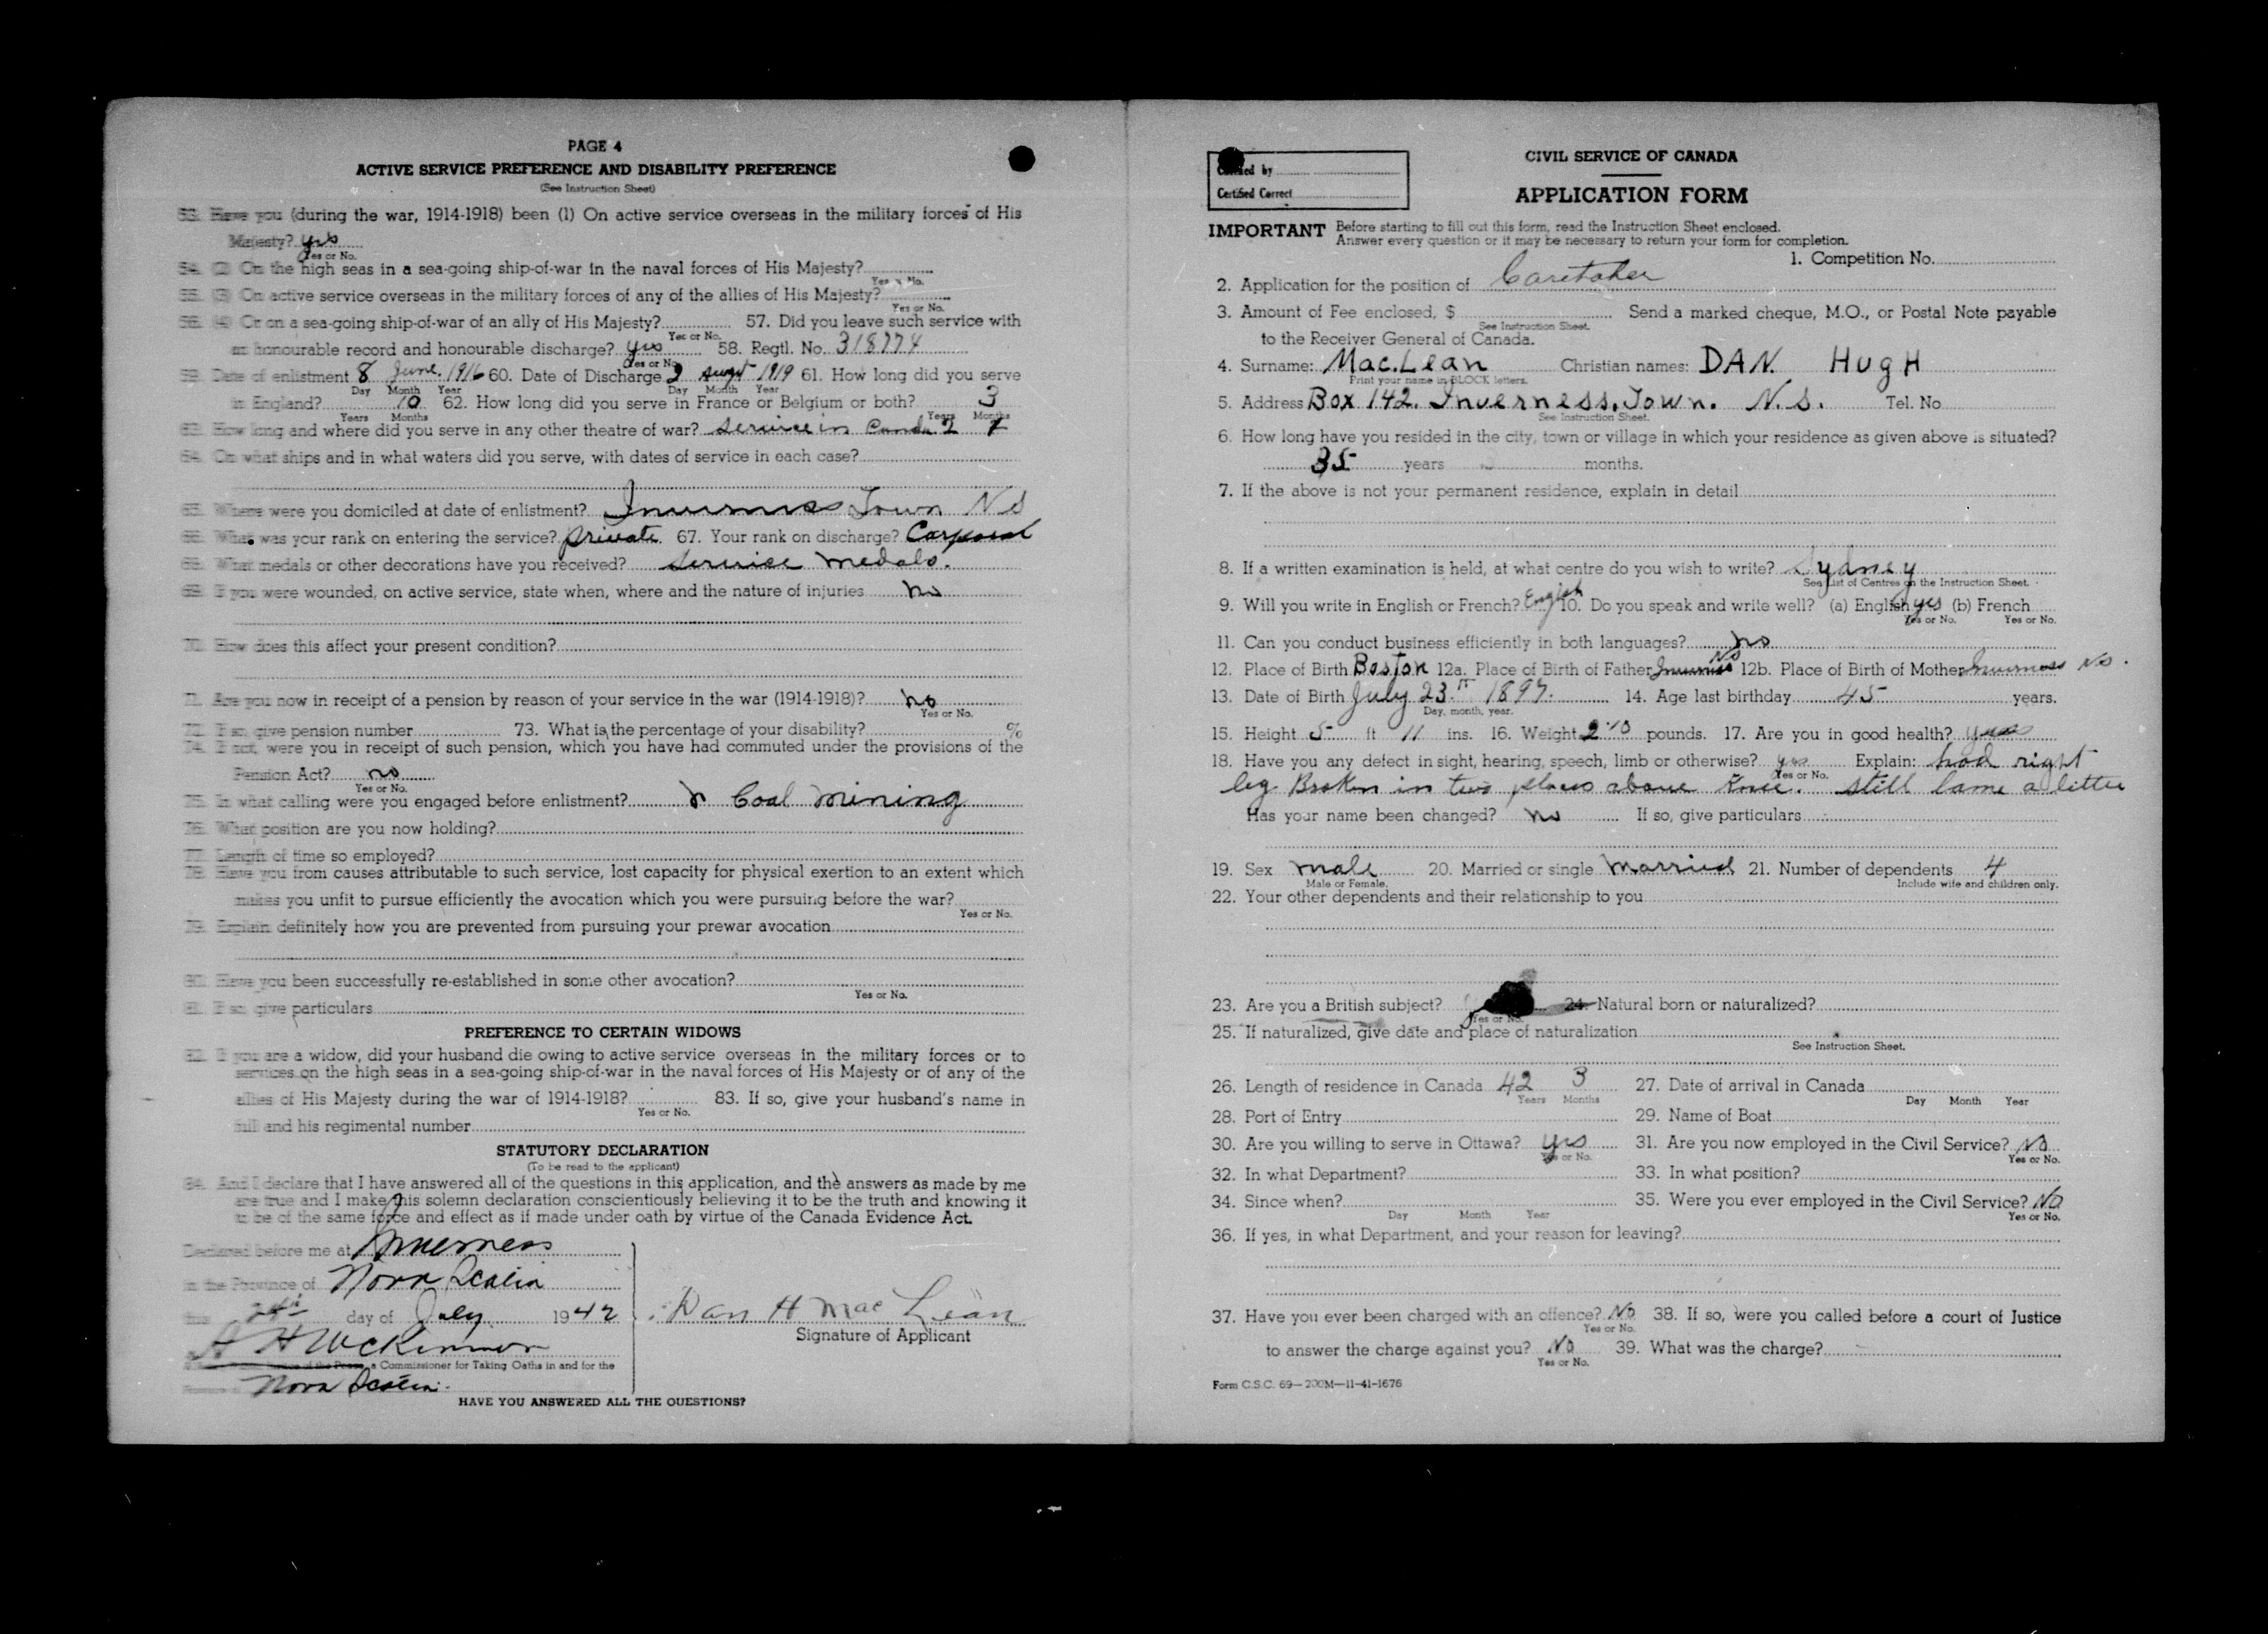 PAGE 4
ACTIVE SERVICE PREFERENCE AND DISABILITY PREFERENCE
(See Instruction Sheet)
53. Have you (during the war, 1914-1918) been (1) On active service overseas in the military forces of His
Majesty? yes
Yes or No.
54. (2) On the high seas in a sea-going ship-of-war in the naval forces of His Majesty?
Yes or No.
55. (3) On active service overseas in the military forces of any of the allies of His Majesty?
Yes or No.
56. (4) Or on a sea-going ship-of-war of an ally of His Majesty? 57. Did you leave such service with
Yes or No.
an honourable record and honourable discharge? yes 58. Regtl. No.
Yes or No
59. Date of enlistment 8 June. 1916 60. Date of Discharge 2 1919 61. How long did you serve
Day Month Year Day Month Year
in England? 10 62. How long did you serve in France or Belgium or both? 3
Years Months Years Months
63. How long and where did you serve in any other theatre of war? service in 2 7
64. On what ships and in what waters did you serve, with dates of service in each case?
65. Where were you domiciled at date of enlistment? Inverness Town N S
66. What was your rank on entering the service? private 67. Your rank on discharge? Corporal
68. What medals or other decorations have you received? service medals.
69. If you were wounded, on active service, state when, where and the nature of injuries no
70. How does this affect your present condition?
71. Are you now in receipt of a pension by reason of your service in the war (1914-1918)? no
Yes or No.
72. If so, give pension number 73. What is the percentage of your disability? %
74. If not, were you in receipt of such pension, which you have had commuted under the provisions of the
Pension Act? no
Yes or No.
75. In what calling were you engaged before enlistment? Coal mining
76. What position are you now holding?
77. Length of time so employed?
78. Have you from causes attributable to such service, lost capacity for physical exertion to an extent which
makes you unfit to pursue efficiently the avocation which you were pursuing before the war?
Yes or No.
79. Explain definitely how you are prevented from pursuing your prewar avocation
80. Have you been successfully re-established in some other avocation?
Yes or No.
81. If so, give particulars
PREFERENCE TO CERTAIN WIDOWS
82. If you are a widow, did your husband die owing to active service overseas in the military forces or to
services on the high seas in a sea-going ship-of-war in the naval forces of His Majesty or of any of the
allies of His Majesty during the war of 1914-1918? 83. If so, give your husband's name in
Yes or No.
full and his regimental number
STATUTORY DECLARATION
(To be read to the applicant)
84. And I declare that I have answered all of the questions in this application, and the answers as made by me
are true and I make this solemn declaration conscientiously believing it to be the truth and knowing it
to be of the same force and effect as if made under oath by virtue of the Canada Evidence Act.
Declared before me at Inverness
in the Province of Nova Scotia
this 24th day of July 1942
Dan H MacLean
Signature of Applicant
a Commissioner for Taking Oaths in and for the
Nova Scotia.
HAVE YOU ANSWERED ALL THE QUESTIONS?
Checked by
Certified Correct
CIVIL SERVICE OF CANADA
APPLICATION FORM
IMPORTANT Before starting to fill out this form, read the Instruction Sheet enclosed.
Answer every question or it may be necessary to return your form for completion.
1. Competition No.
2. Application for the position of Caretaker
3. Amount of Fee enclosed, $ Send a marked cheque, M.O., or Postal Note payable
See Instruction Sheet.
to the Receiver General of Canada.
4. Surname: MacLean Christian names: DAN. HugH
Print your name in BLOCK letters.
5. Address Box 142. Inverness. Town. N.S. Tel. No
See Instruction Sheet.
6. How long have you resided in the city, town or village in which your residence as given above is situated?
35 years months.
7. If the above is not your permanent residence, explain in detail
8. If a written examination is held, at what centre do you wish to write? Sydney
See List of Centres on the Instruction Sheet.
9. Will you write in English or French? English 10. Do you speak and write well? (a) English yes (b) French
Yes or No. Yes or No.
11. Can you conduct business efficiently in both languages? no
12. Place of Birth Boston 12a. Place of Birth of Father Inverness NS 12b. Place of Birth of Mother Inverness NS.
13. Date of Birth July 23. 1897. 14. Age last birthday 45 years.
Day, month, year.
15. Height 5 ft 11 ins. 16. Weight 210 pounds. 17. Are you in good health? yes
18. Have you any defect in sight, hearing, speech, limb or otherwise? yes Explain: had right
Yes or No.
leg Broken in two places above Knee. still lame a little
Has your name been changed? no If so, give particulars
19. Sex male 20. Married or single Married 21. Number of dependents 4
Male or Female. Include wife and children only.
22. Your other dependents and their relationship to you
23. Are you a British subject? 24. Natural born or naturalized?
Yes or No.
25. If naturalized, give date and place of naturalization
See Instruction Sheet.
26. Length of residence in Canada 42 3 27. Date of arrival in Canada
Years Months Day Month Year
28. Port of Entry 29. Name of Boat
30. Are you willing to serve in Ottawa? yes 31. Are you now employed in the Civil Service? No
Yes or No. Yes or No.
32. In what Department? 33. In what position?
34. Since when? 35. Were you ever employed in the Civil Service? No
Day Month Year Yes or No.
36. If yes, in what Department, and your reason for leaving?
37. Have you ever been charged with an offence? No 38. If so, were you called before a court of Justice
Yes or No.
to answer the charge against you? No 39. What was the charge?
Yes or No.
Form C.S.C. 69—200M—11-41-1676